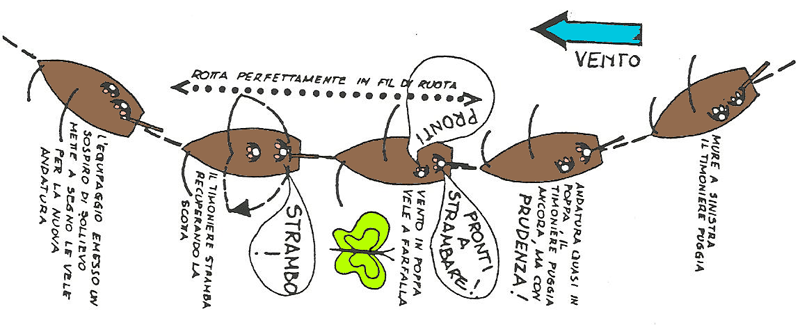 VENTO
ROTTA PERFETTAMENTE IN FIL DI RUOTA
MURE A SINISTRA
IL TIMONIERE PUGGIA
ANDATURA QUASI IN
POPPA, IL
TIMONIERE PUGGIA
ANCORA, MA CON
PRUDENZA!
PRONTI
PRONTI
A
STRAMBARE!
VENTO IN POPPA
VELE A FARFALLA
STRAMBO
!
IL TIMONIERE STRAMBA
RECUPERANDO LA
SCOTA
L'EQUIPAGGIO EMESSO UN
SOSPIRO DI SOLLIEVO
METTE A SEGNO LE VELE
PER LA NUOVA
ANDATURA